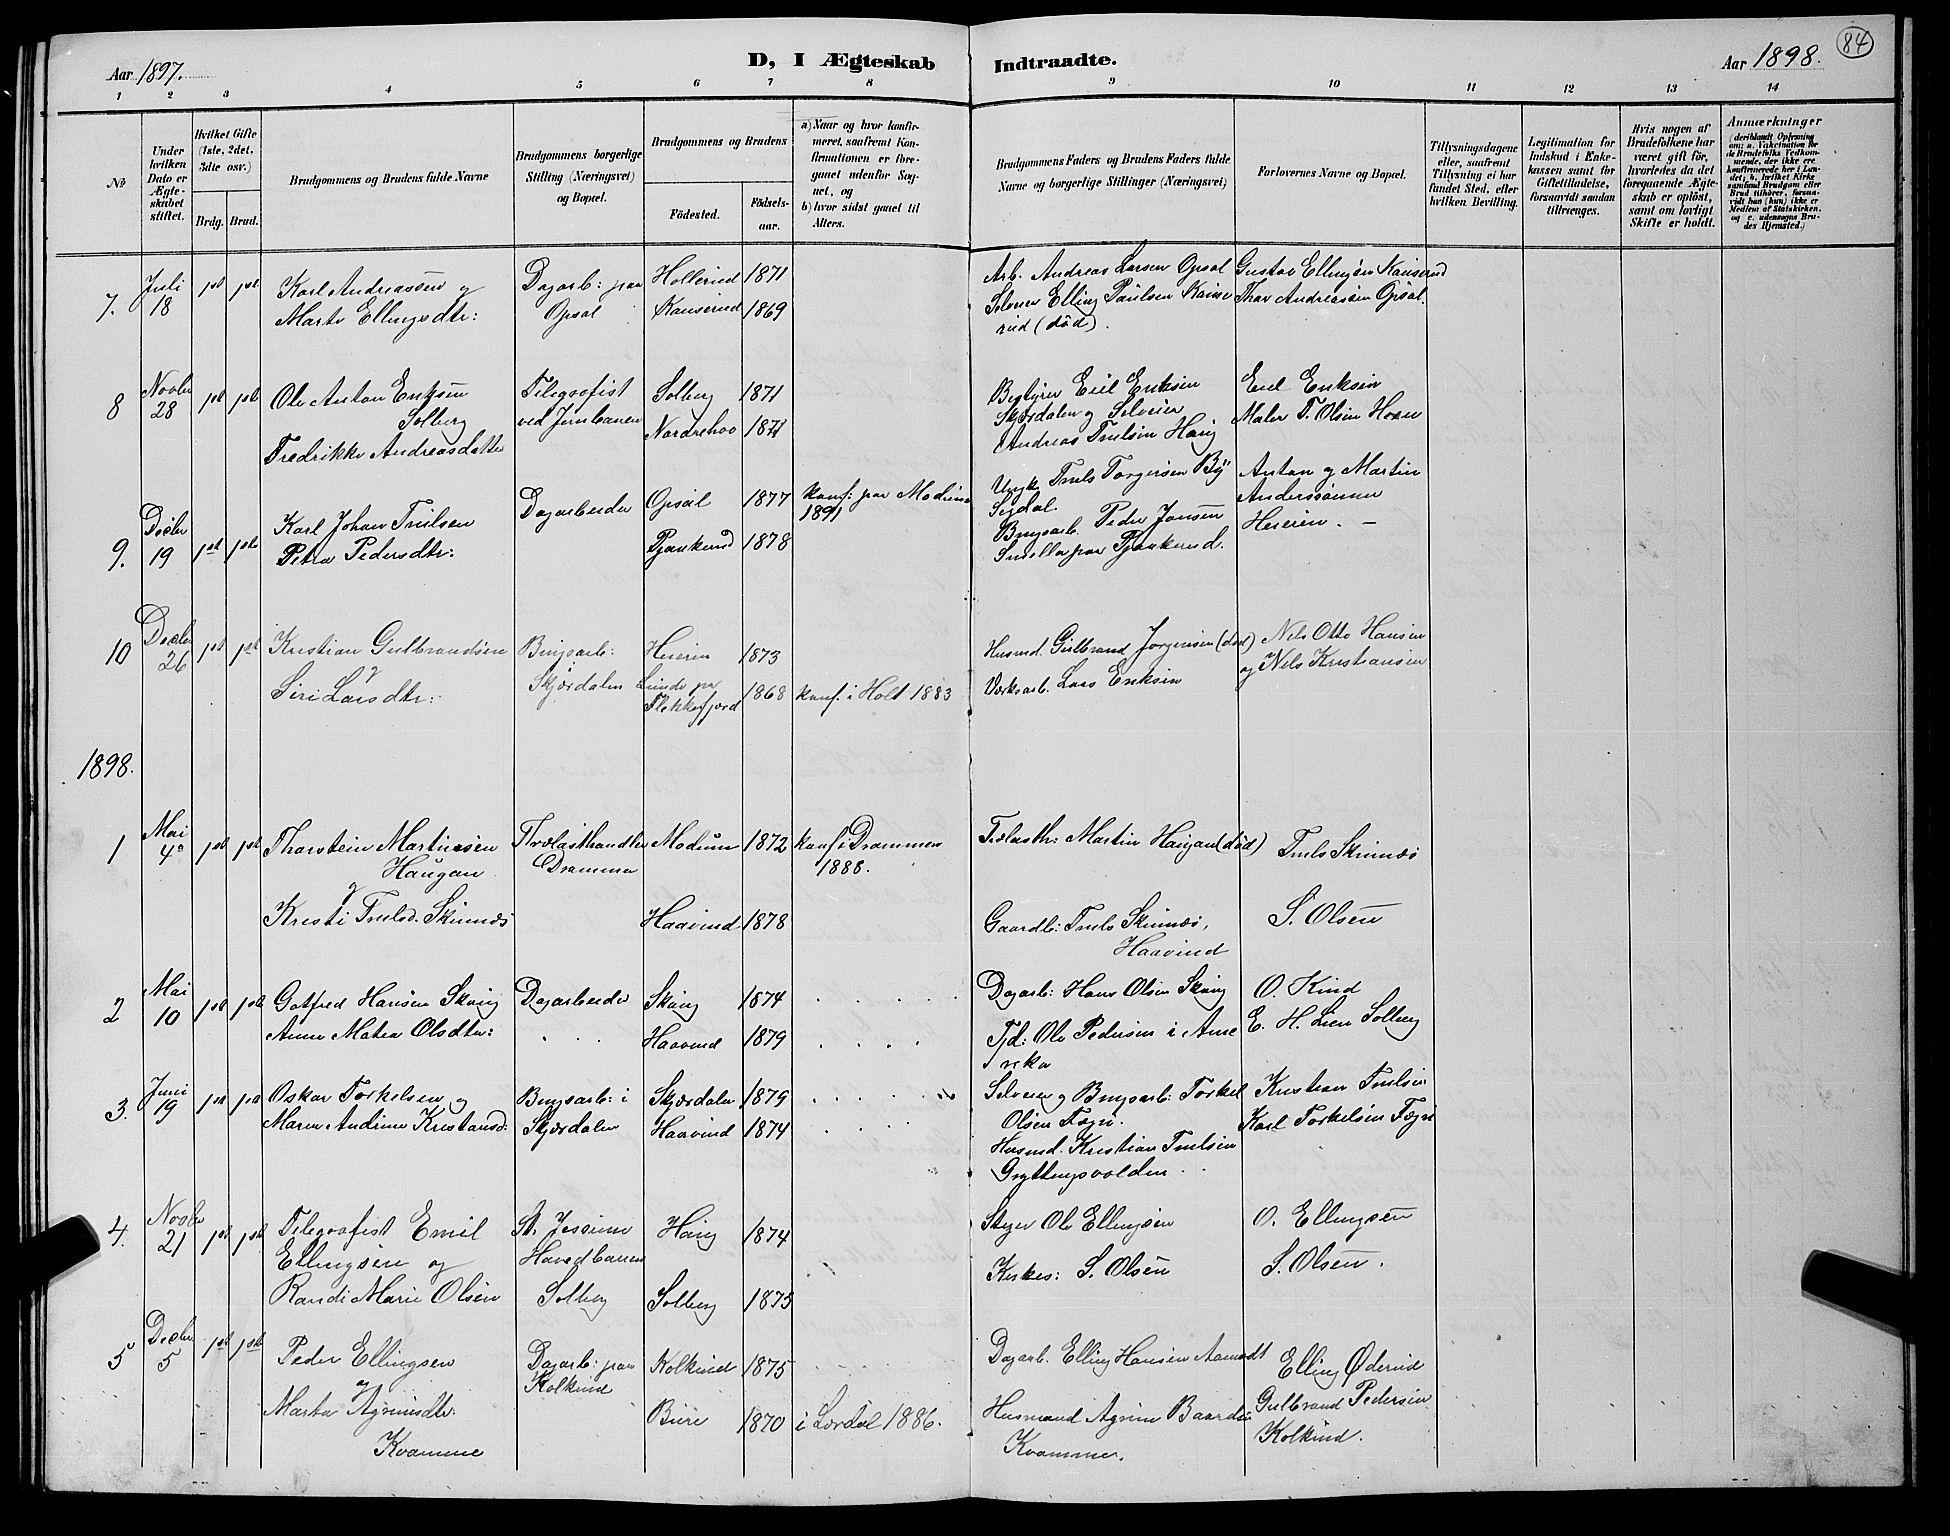 Aar 1897.
D, I Ægteskab Indtraadte.
Aar 1898.
84
1 2 3 4 5 6 7 8 9 10 11 12 13 14
No
Under hvilken Dato er Ægteskabet stiftet.
Hvilket Gifte (1ste, 2det, 3dte osv.)
Brdg. Brud.
Brudgommens og Brudens fulde Navne
Brudgommens borgerlige Stilling (Næringsvei) og Bopæl.
Brudgommens og Brudens
Födested.
Födselsaar.
a) Naar og hvor konfirmeret, saafremt Konfirmationen er foregaaet udenfor Sognet, og
b) hvor sidst gaaet til Alters.
Brudgommens Faders og Brudens Faders fulde Navne og borgerlige Stillinger (Næringsvei)
Forlovernes Navne og Bopæl.
Tillysningsdagene eller, saafremt Tillysning ei har fundet Sted, efter hvilken Bevilling.
Legitimation for Indskud i Enkekassen samt for Giftetilladelse, forsaavidt saadan tiltrænges.
Hvis nogen af Brudefolkene har været gift før, hvorledes da det foregaaende Ægteskab er oplöst, samt om lovligt Skifte er holdt.
Anmærkninger
(deriblandt Oplysning om: a. Vakcination for de Brudefolks Vedkommende, der ikke ere konfirmerede her i Landet; b. hvilket Kirkesamfund Brudgom eller Brud tilhörer, forsaavidt han (hun) ikke er Medlem af Statskirken, og c. udensogns Brudes Hjemsted.)
7. Juli 18 1st 1st
Karl Andreassen og
Marte Ellingsdtr:
Dagarb: paa
Opsal
Hollerud 1871
Kanserud 1869
Arb. Andreas Larsen Opsal
Selveier Elling Paulsen Kanserud (død).
Gustav Ellingsen Kanserud
Thor Andreasen Opsal.
8 Novbr 28 1st 1st
Ole Anton Eriksen
Solberg
Fredrikke Andreasdatter
Telegrafist
ved Jernbanen
Solberg 1871
Norderhov 1871
Emil Eriksen
Skjærdalen og Selveier
Andreas Trulsen Haug
Emil Eriksen
Maler T. Olsen Hoen
9. Decbr 19 1st 1ste
Karl Johan Trulsen
Petra Pedersdtr:
Dagarbeider
Opsal 1877
1878
konf: paa Modum
1891
Ungk. Truls Torgersen By
Sigdal.
Brugsarb. Peder Jansen
Anton og Martin
Anderssønner
Heieren. —
10 Decbr 26 1st 1st
Kristian Gulbrandsen
og
Siri Larsdtr:
Brugsarb:
Skjærdalen
Heieren 1873
Lunde pr
Flekkefjord 1868
konf. i Holt 1883
Husmd. Gulbrand Jørgensen (død)
Værksarb. Lars Eriksen
Nels Otto Hansen
og Nels Kristiansen
1898.
1 Mai 4de 1st 1st
Thorstein Martinsen
Haugan
og
Kristi Trulsd. Skinnes
Trælasthandler
Drammen
Modum 1872
Haavind 1878
konf. i Drammen
1888.
Trælasth: Martin Haugan (død)
Gaardb: Truls Skinnes,
Haavind
Truls Skinnes
S. Olsen
2 Mai 10 1st 1st
Gotfred Hansen Skaug
Anne Matea Olsdtr:
Dagarbeider
Skaug 1874
Haavind 1879
Dagarb: Hans Olsen Skaug
Tjd: Ole Pedersen i Amerika
O. Kind
E. H. Lien Solberg
3. Juni 19 1st 1st
Oskar Torkelsen og
Maren Andrine Kristiansd:
Brugsarb: i
Skjærdalen
Skjærdalen 1879
Haavind 1874
Selveier og Brugsarb: Torkel
Olsen Fagn.
Husmd. Kristian Trulsen
Gryttingsvolden
Kristian Trulsen
Karl Torkelsen Fagn
4. Novbr 21 1st 1st
Telegrafist Emil
Ellingsen og
Randi Marie Olsen
St. Jessheim
Hovedbanen
Solberg
Haug 1874
Solberg 1875
Styer Ole Ellingsen
Kirkes: S. Olsen
O. Ellingsen
S. Olsen.
5 Decbr 5 1st 1ste
Peder Ellingsen
og
Marta Agrimsdtr.
Kvamme
Dagarb: paa
Kolkind
Kolkind 1875
1870
i Lærdal 1886.
Dagarb. Elling Hansen Aamodt
Husmand Agrim Baardsen
Kvamme.
Elling Øderud
Gulbrand Pedersen
Kolkind.